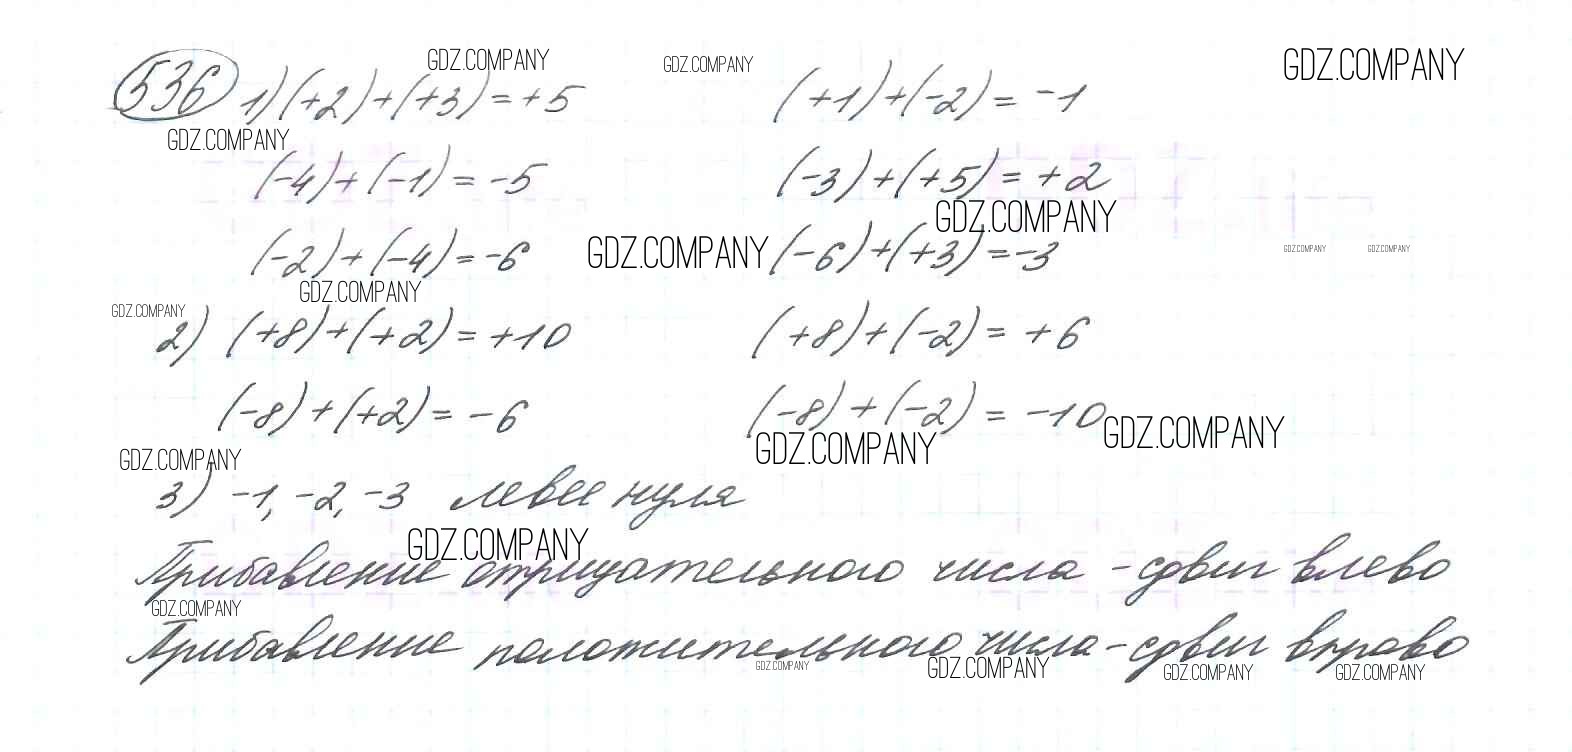 GDZ.COMPANY GDZ.COMPANY GDZ.COMPANY
536 1) (+2)+(+3)=+5 (+1)+(-2)= -1
GDZ.COMPANY
(-4)+(-1)=-5 (-3)+(+5)=+2
GDZ.COMPANY
(-2)+(-4)=-6 GDZ.COMPANY (-6)+(+3)=-3 GDZ.COMPANY GDZ.COMPANY
GDZ.COMPANY
GDZ.COMPANY
2) (+8)+(+2)=+10 (+8)+(-2)= +6
(-8)+(+2)= -6 (-8)+(-2) = -10 GDZ.COMPANY
GDZ.COMPANY GDZ.COMPANY
3) -1, -2, -3 левее нуля
GDZ.COMPANY
Прибавление отрицательного числа - сдвиг влево
GDZ.COMPANY
Прибавление положительного числа - сдвиг вправо
GDZ.COMPANY GDZ.COMPANY GDZ.COMPANY GDZ.COMPANY